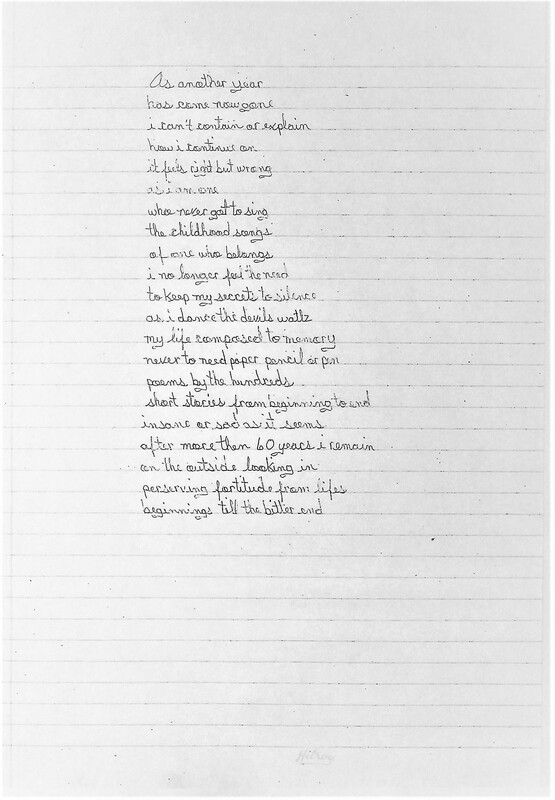 As another year
has come now gone
i can't contain or explain
how i continue on
it feels right but wrong
as i am one
who never got to sing
the childhood songs
of one who belongs
i no longer feel the need
to keep my secrets to silence
as i dance the devils waltz
my life composed to memory
never to need paper pencil or pen
poems by the hundreds
short stories from beginning to end
insane or sad as it seems
after more then 60 years i remain
on the outside looking in
perserving fortitude from lifes
beginnings till the bitter end
Hilroy